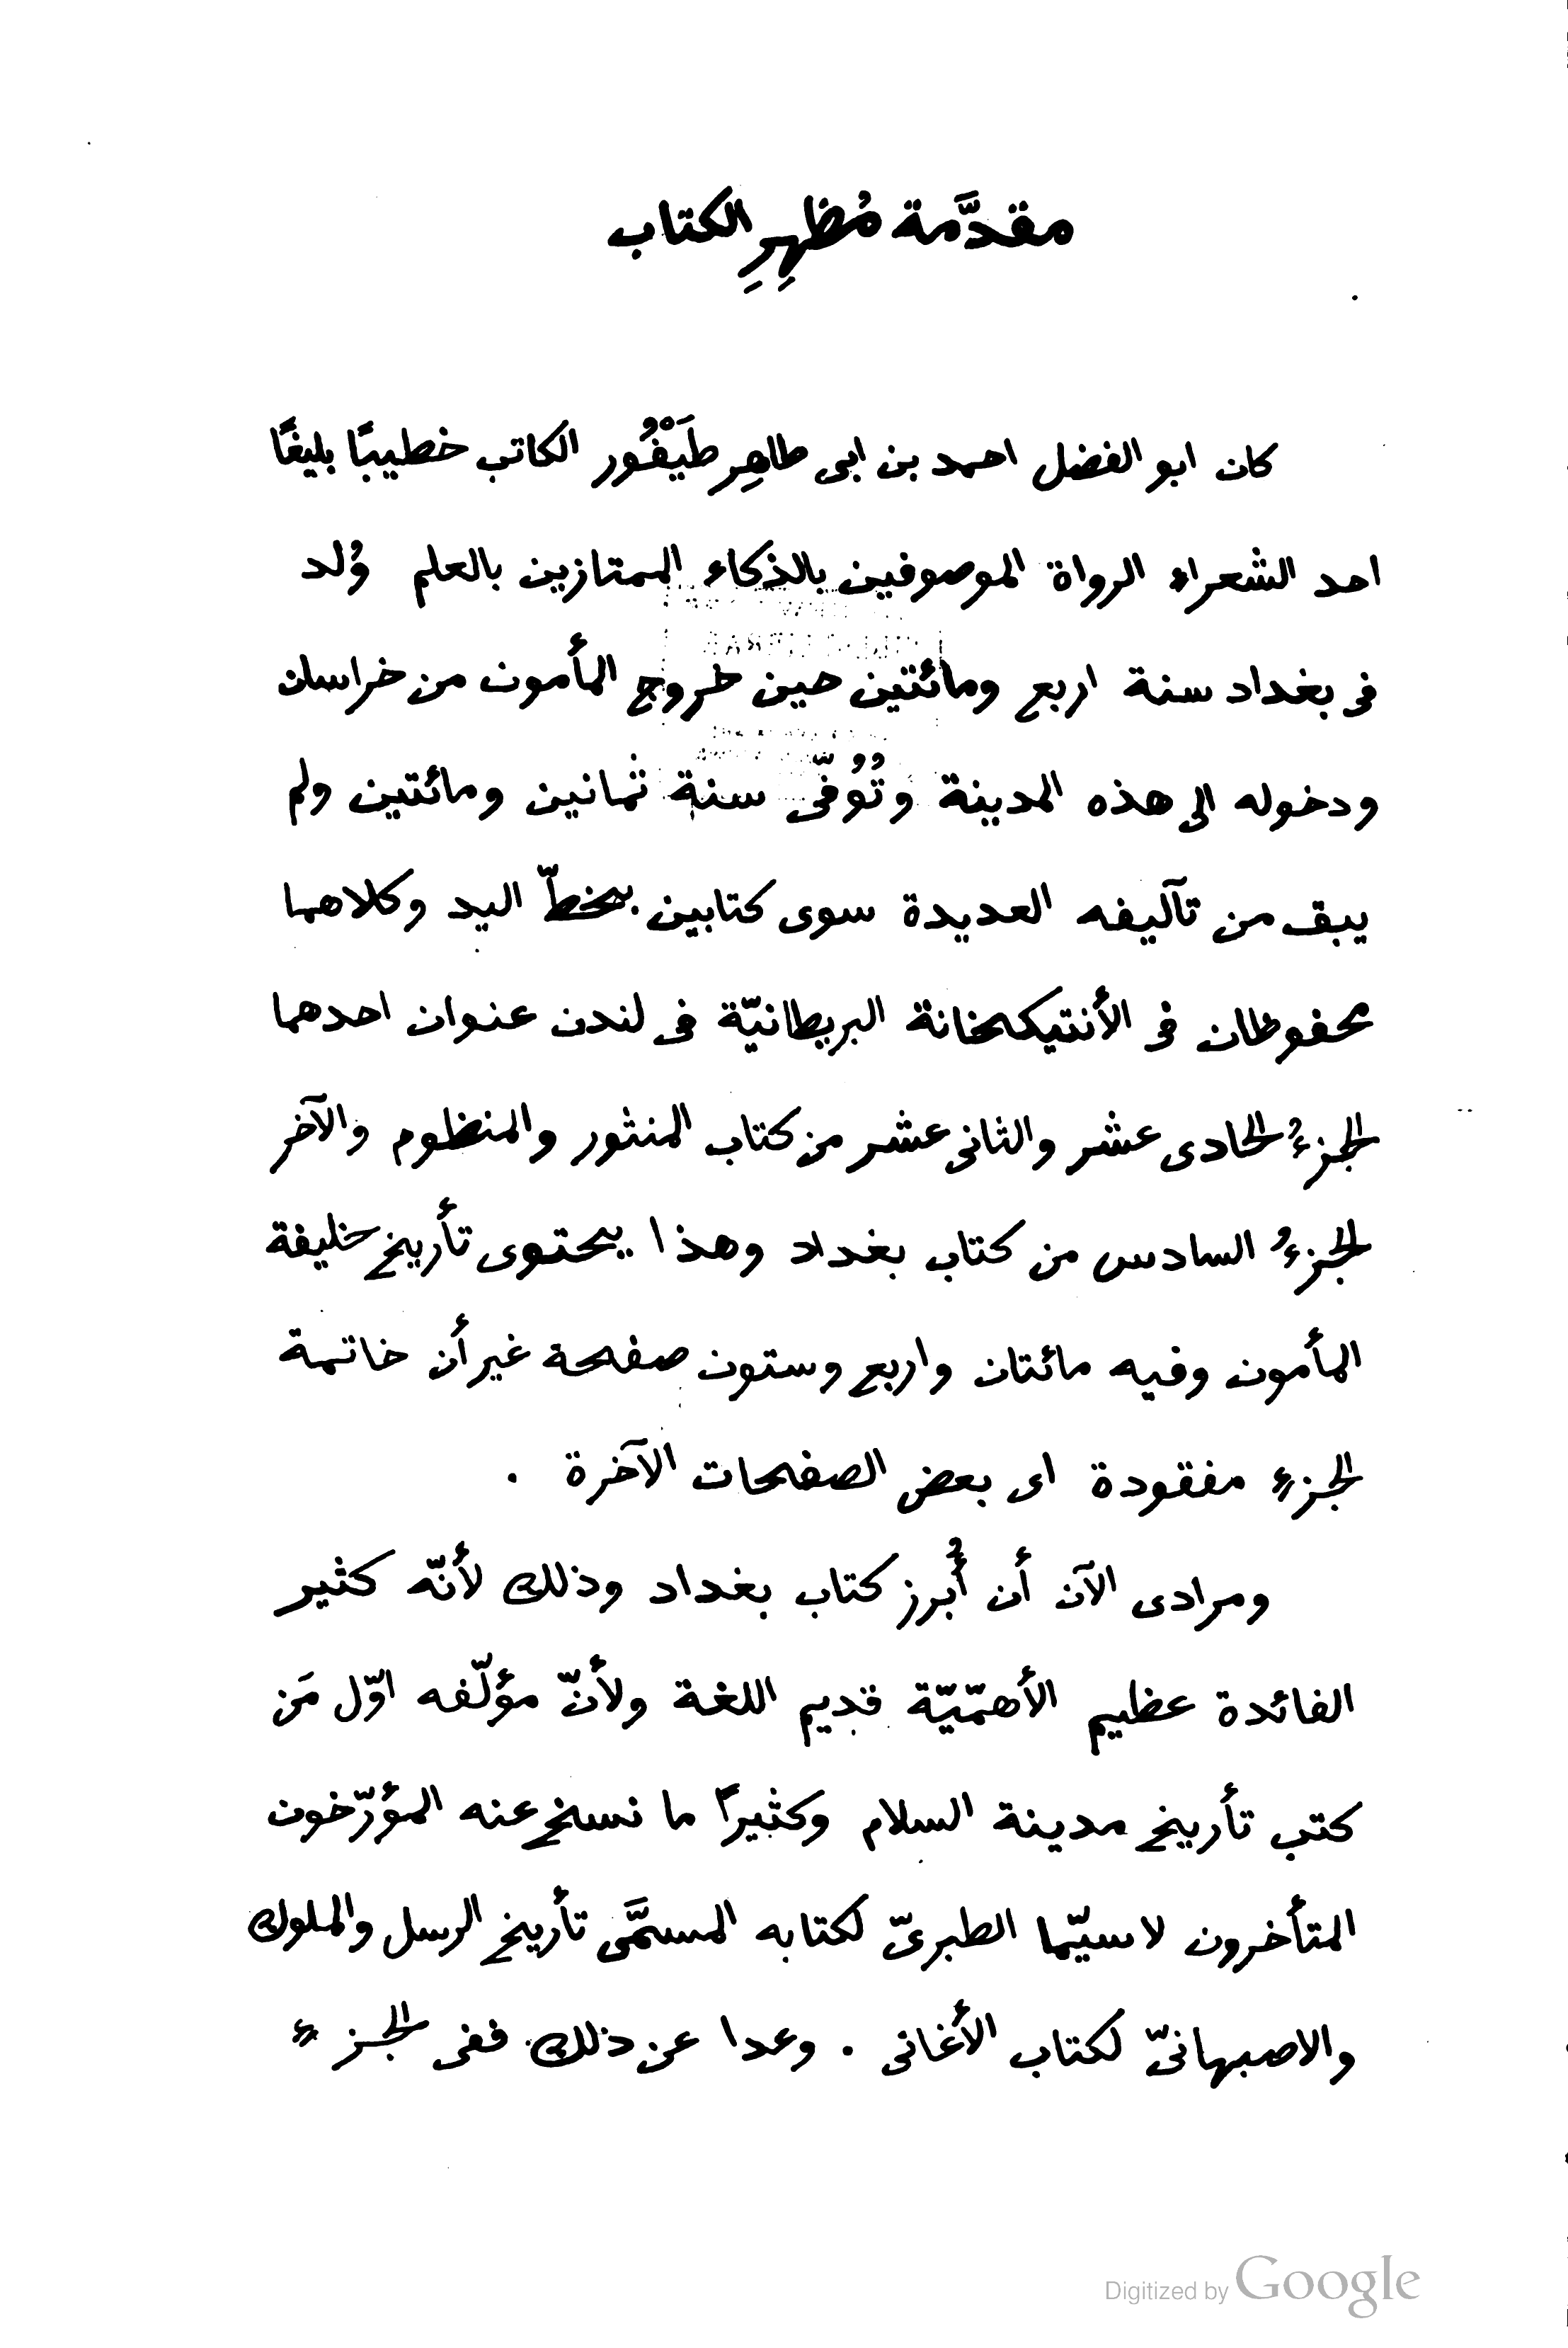 مقدَّمة مُظهِرِ الكتاب
كان ابو الفضل احمد بن ابى طاهِر طَيْفُور الكاتب خطيبًا بليغًا
احد الشعراء الرواة الموصوفين بالذكاء الممتازين بالعلم وُلد
فى بغداد سنة اربع ومائتين حين خروج المأمون من خراسان
ودخوله الى هذه المدينة وتُوُفّى سنة ثمانين ومائتين ولم
يبق من تآليفه العديدة سوى كتابين بخطّ اليد وكلاهما
محفوظان فى الأنتيكخانة البريطانيّة فى لندن عنوان احدهما
الجزءُ الحادى عشر والثانى عشر من كتاب المنثور والمنظوم والآخر
الجزءُ السادس من كتاب بغداد وهذا يحتوى تأريخ خليفة
المأمون وفيه مائتان واربع وستون صفحة غير أن خاتمة
الجزء مفقودة اى بعض الصفحات الآخرة .
ومرادى الآن أن أُبرز كتاب بغداد وذلك لأنّه كثير
الفائدة عظيم الأهمّيّة قديم اللغة ولأنّ مؤلّفه اوّل مَن
كتب تأريخ مدينة السلام وكثيرًا ما نسخ عنه المؤرّخون
المتأخرون لاسيّما الطبرىّ لكتابه المسمَّى تأريخ الرسل والملوك
والاصبهانىّ لكتاب الأغانى . وعدا عن ذلك ففى الجزء
Digitized by Google